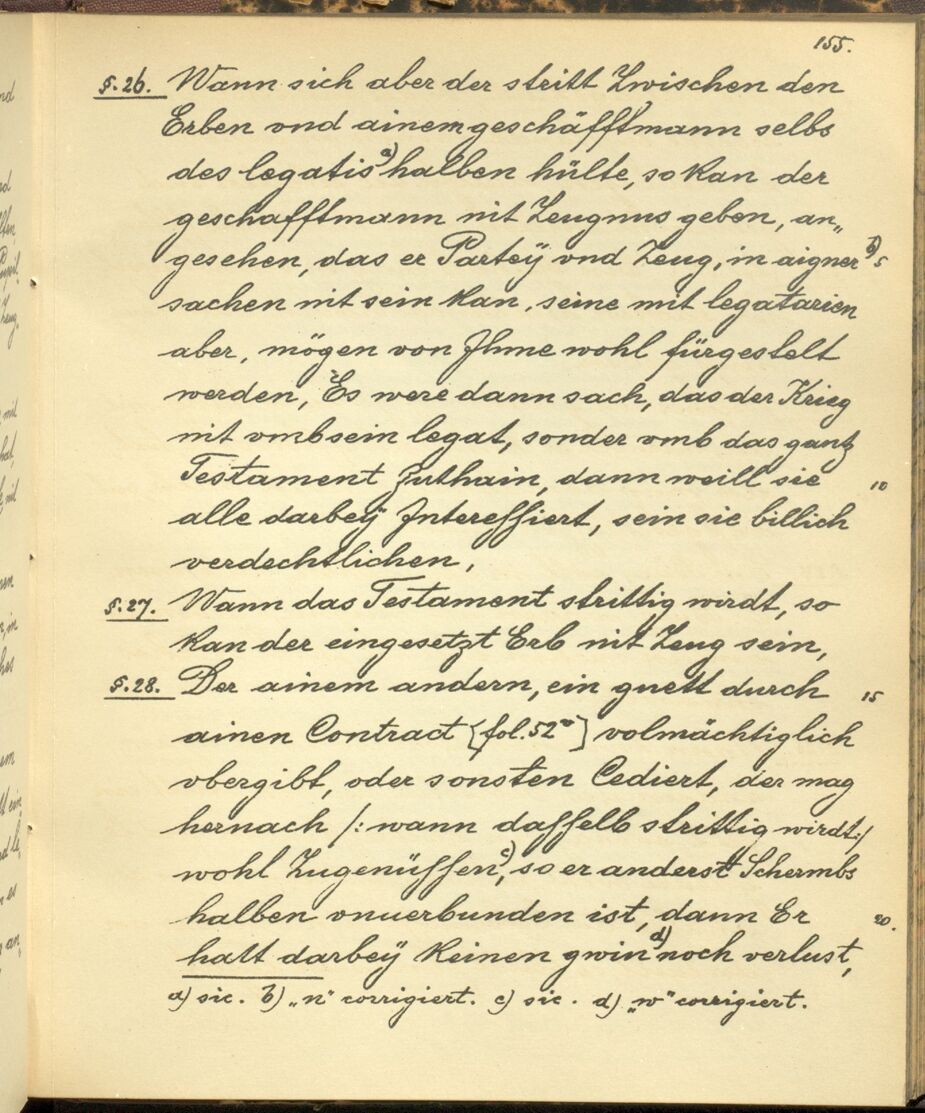 155.
§.26. Wann sich aber der stritt Zwischen den
Erben vnd ainem geschäfftmann selbs
des legatis a) halben hülte, so kan der
geschafftmann nit Zeugnus geben, an„
gesehen, das er Parteÿ vnd Zeug, in aigner b) 5
sachen nit sein kan, seine mit legatarien
aber, mögen von Jhme wohl fürgestelt
werden, Es were dann sach, das der Krieg
nit vmb sein legat, sonder vmb das gantz
Testament Zuthain, dann weill sie 10
alle darbeÿ Jnteressiert, sein sie billich
verdechtlichen,
§.27. Wann das Testament strittig wirdt, so
kan der eingesetzt Erb nit Zeug sein,
§.28. Der ainem andern, ein guett durch 15
ainen Contract [fol. 52v] volmächtiglich
vbergibt, oder sonsten Cediert, der mag
hernach /: wann dasselb strittig wirdt :/
wohl Zugenüssen c), so er anderst Schermbs
halben vnuerbunden ist, dann Er 20.
hatt darbeÿ keinen gwin d) noch verlust,
a) sic. b) „n" corrigiert. c) sic. d) „w" corrigiert.